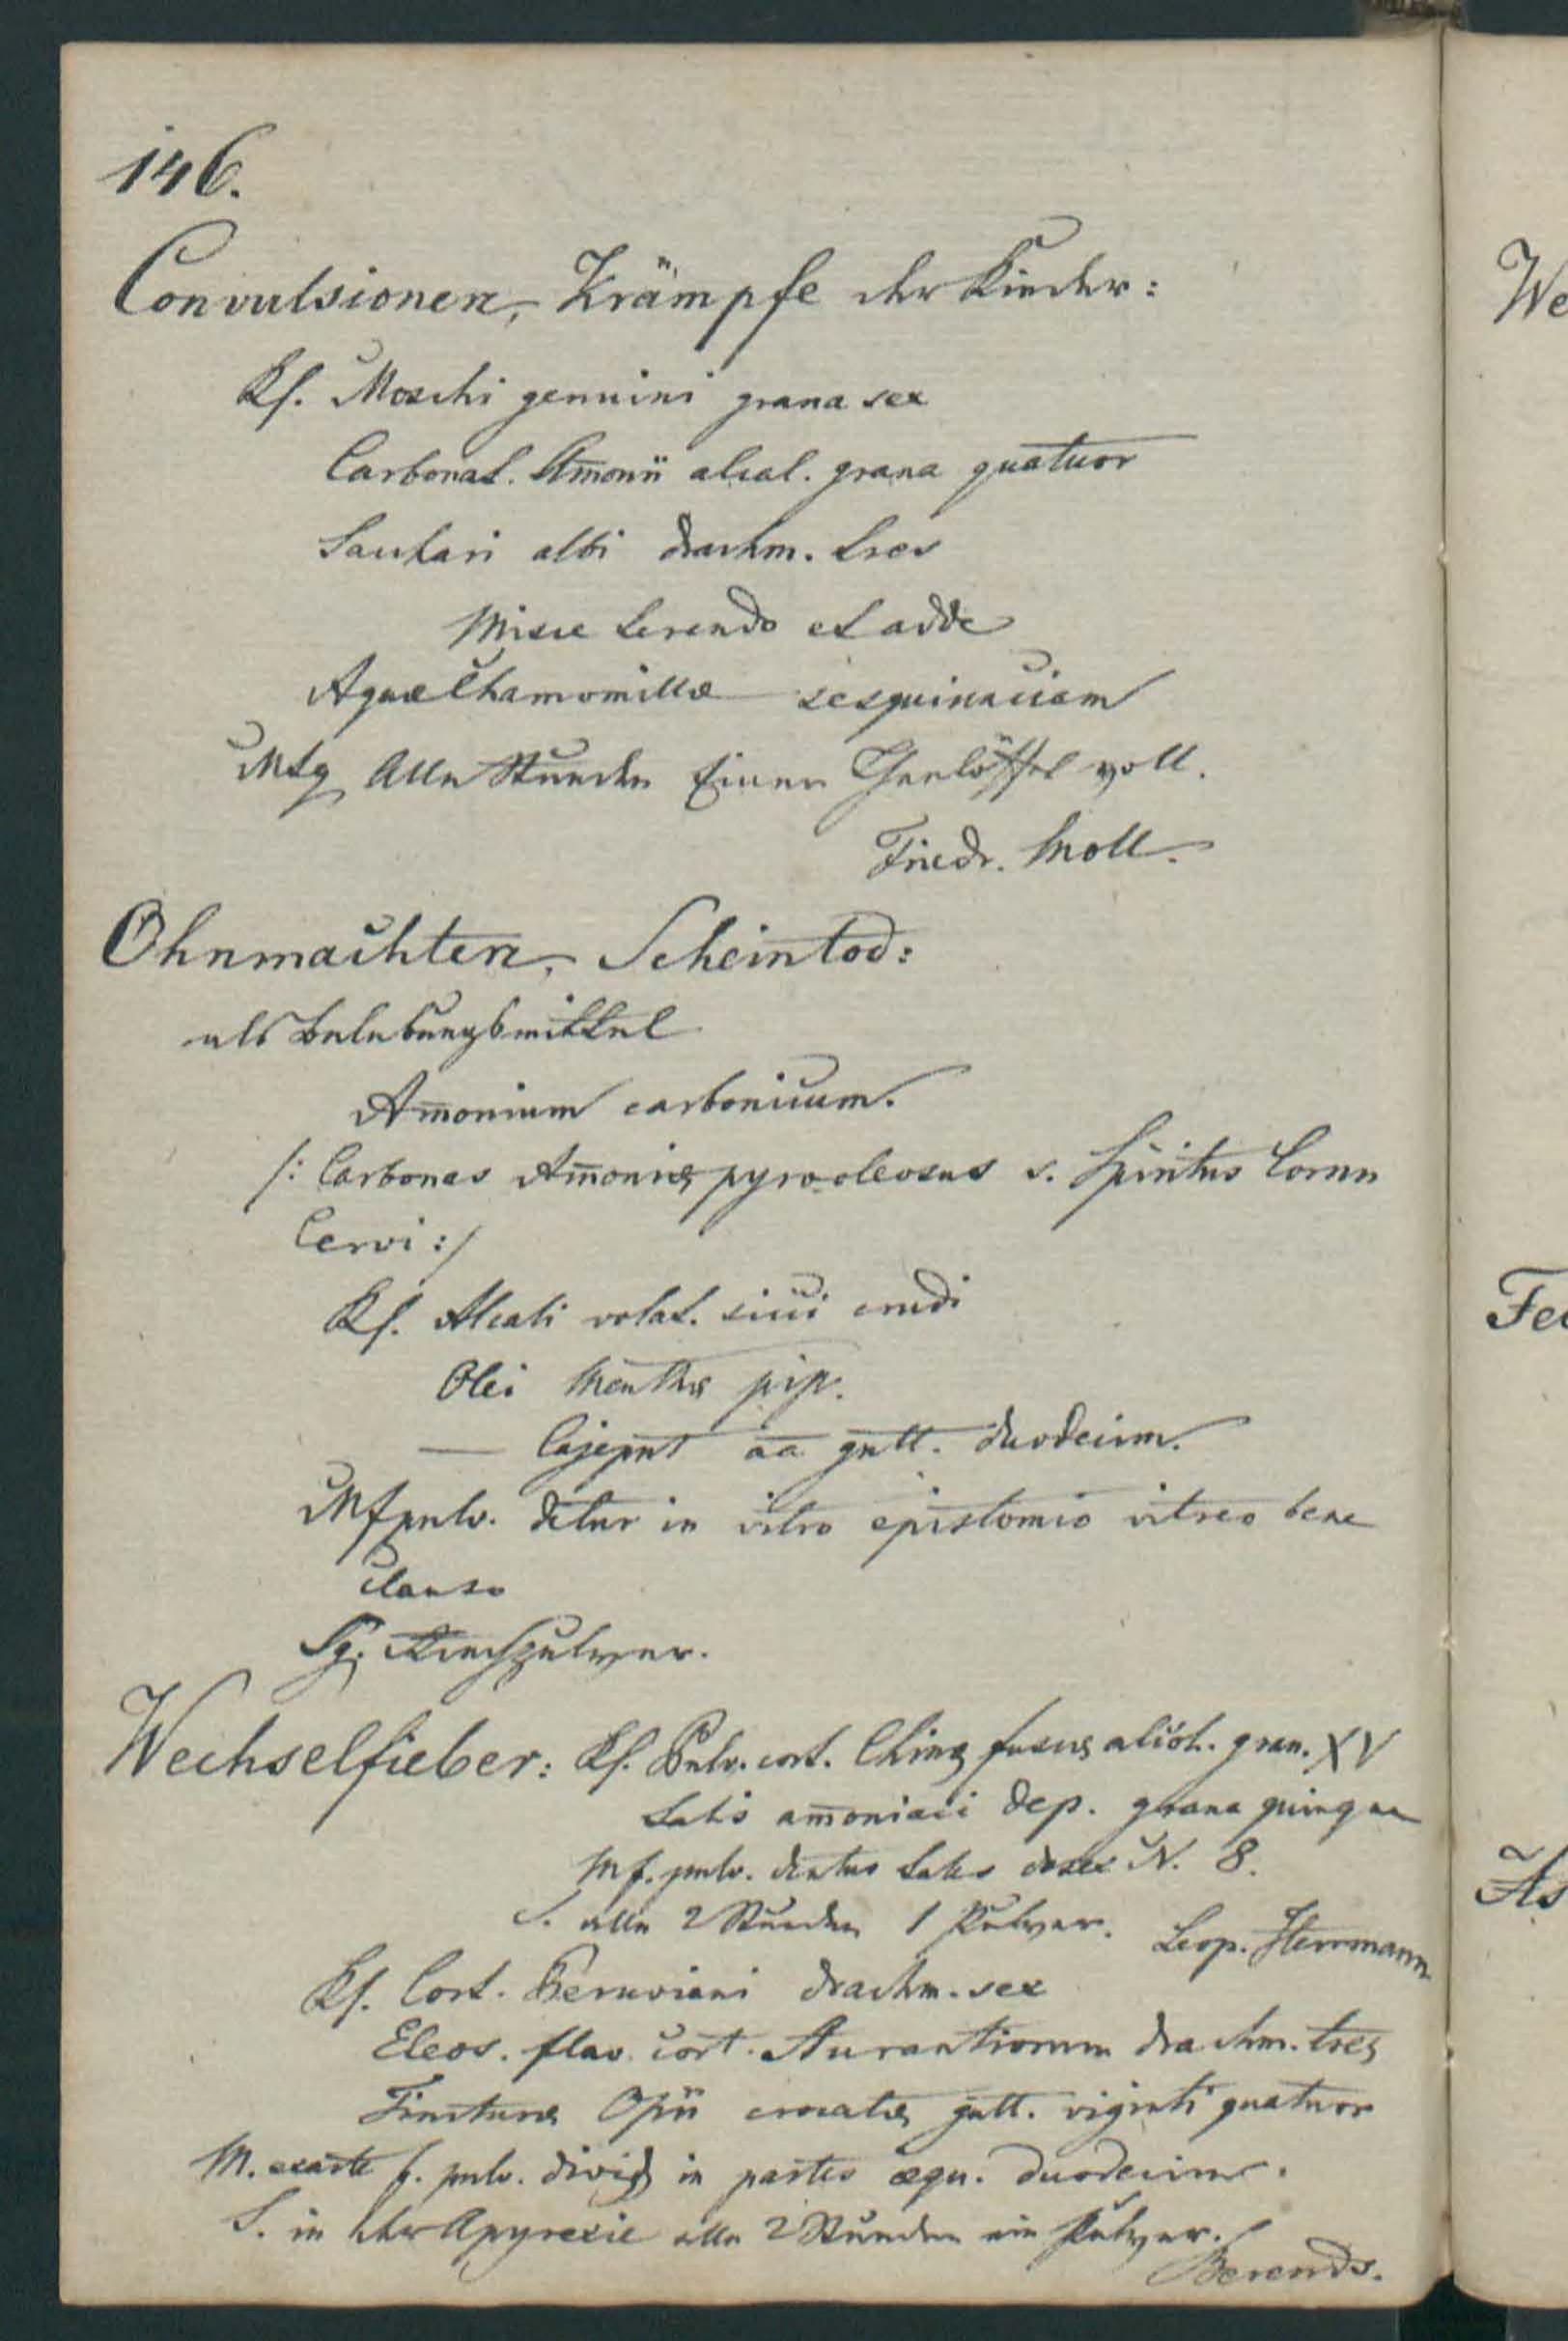 146.
Convulsionen, Krämpfe der Kinder:
Rf. Moschi genuini grana sex
Carbonat. Am̄onii alcal. grana quatuor
Sacchari albi drachm. tres
Misce terendo et adde
Aquæ Chamomillæ sesquiunciam
MSg Alle Stunden Einen Theelöffel voll.
Friedr. Moll.
Ohnmachten, Scheintod:
als Belebungsmittel
Am̄onium carbonicum.
/: Carbonas Am̄oniæ pyro-oleosus s. Spiritus Cornu
Cervi :/
Rf. Alcali volat. sicci crudi
Olei Menthæ pip.
— Cajeput āā gutt. duodecim.
Mfpulv. detur in vitro epistomio vitreo bene
clauso
Sg. Riechpulver.
Wechselfieber: Rf. Pulv. cort. Chinæ fuscæ alcoh. gran. XV
Salis am̄oniaci dep. grana quinque
Mf. pulv. dentur tales doses N. 8.
S. alle 2 Stunden 1 Pulver. Leop. Herrmann
Rf. Cort. Peruviani drachm. sex
Eleos. flav. cort. Aurantiorum drachm. tres
Tincturæ Opii crocatæ gutt. viginti quatuor
M. exacte f. pulv. divid in partes æqu. duodecim.
S. in der Apyrexie alle 2 Stunden ein Pulver.
Berends.
We
Fe
As